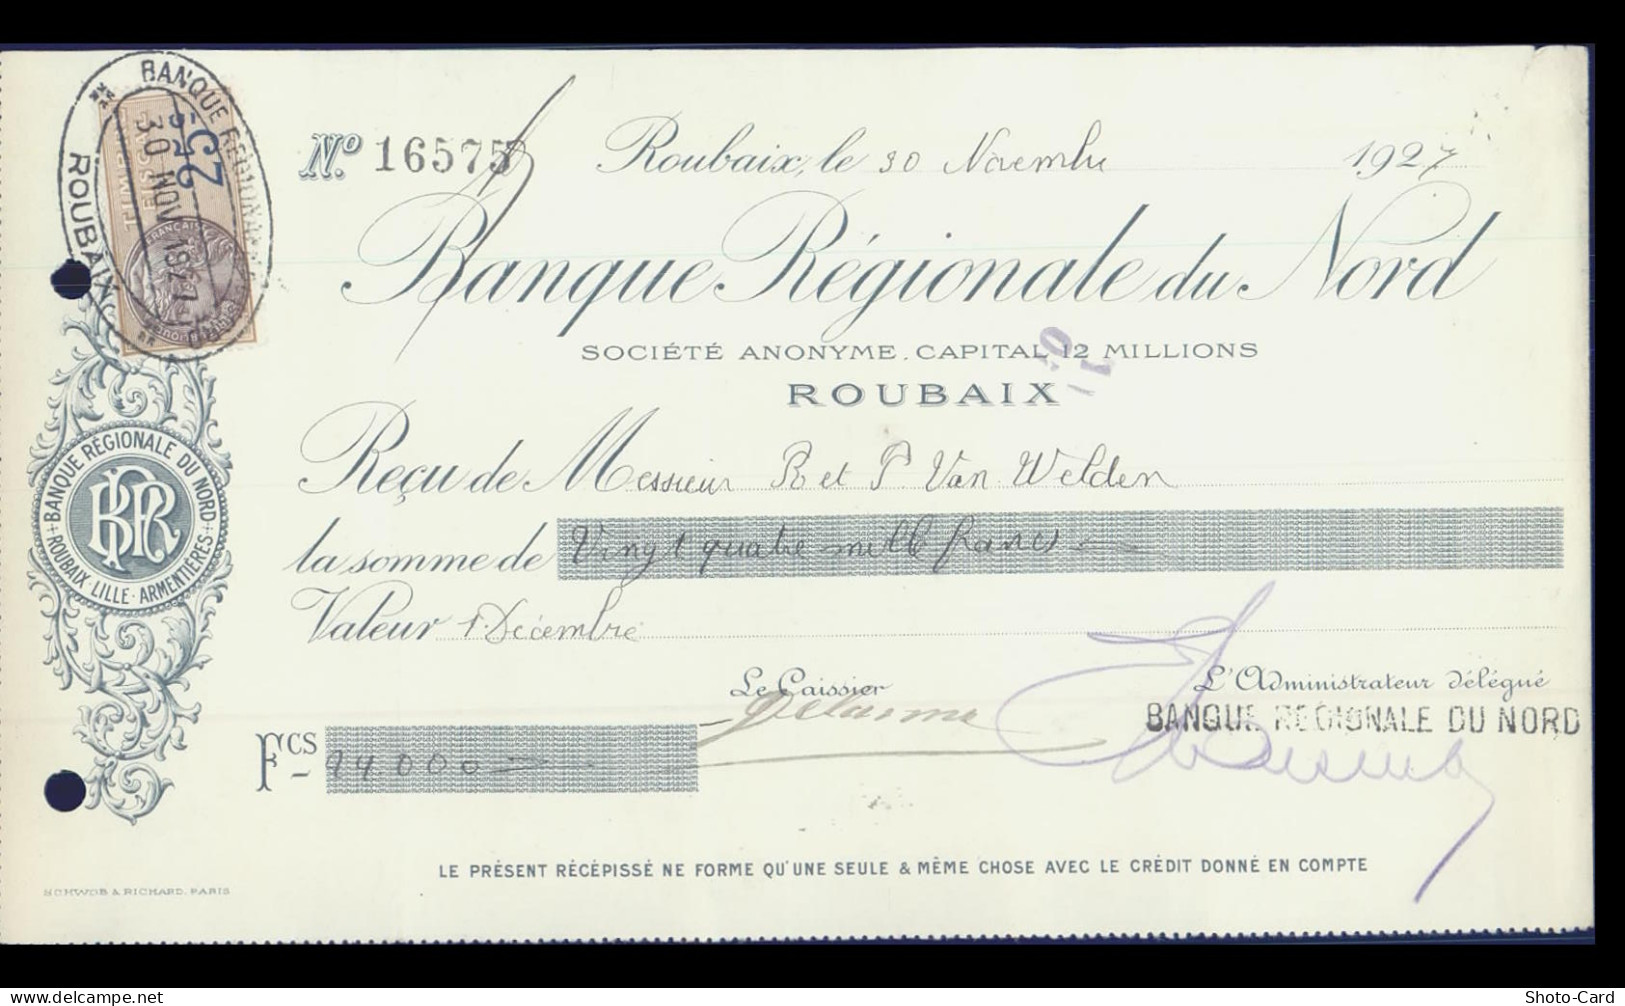 BANQUE RÉGIONALE
30 NOV 1927
ROUBAIX
TIMBRE FISCAL
25
No 16575
Roubaix, le 30 Novembre 1927
Banque Régionale du Nord
SOCIÉTÉ ANONYME. CAPITAL 12 MILLIONS
ROUBAIX
Reçu de Messieur R et P Van Welden
la somme de Vingt quatre mille francs
Valeur 1 Décembre
BANQUE RÉGIONALE DU NORD
ROUBAIX LILLE · ARMENTIÈRES
BRN
Le Caissier
L'Administrateur délégué
BANQUE REGIONALE DU NORD
Fcs 24.000
LE PRÉSENT RÉCÉPISSÉ NE FORME QU'UNE SEULE & MÊME CHOSE AVEC LE CRÉDIT DONNÉ EN COMPTE
SCHWOB & RICHARD. PARIS
www.delcampe.net
Shoto-Card